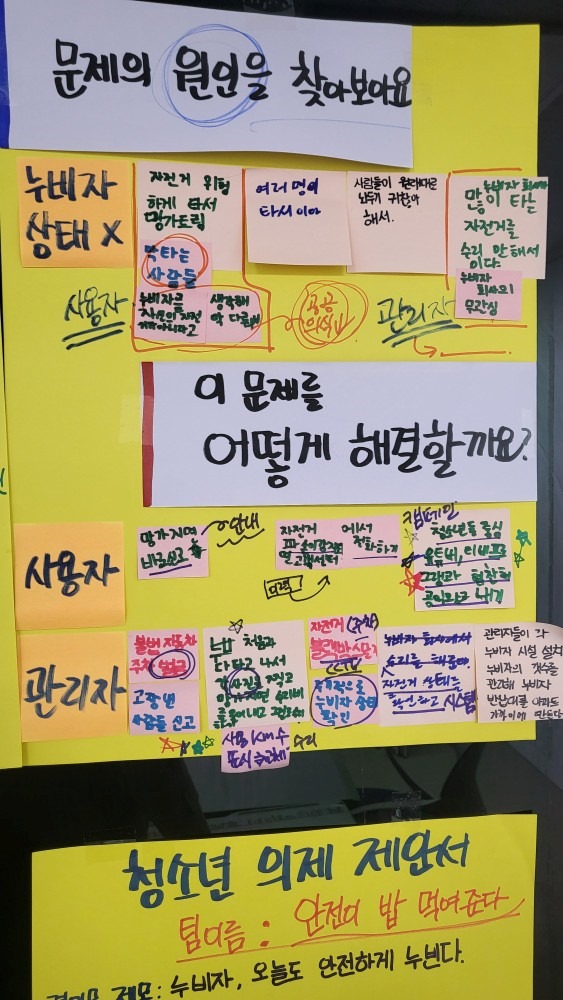 문제의 원인을 찾아보아요
누비자
상태 X
자전거 위험
하게 타서
망가트림
막 타는
사람들
여러 명이
타서이다
사람들이 원래대로
놔두기 귀찮아
해서.
누비자 회사에서
많이 타는
자전거를
수리 안 해서
이다.
누비자
회사의
무관심
사용자
누비자를
자신의 자전
거가 아니라고
생각해
막 다룸
공공
의식 ↓
관리자
이 문제를
어떻게 해결할까요?
사용자
망가지면
바로 신고
안내
자전거
에서
전화하기
캠페인
청소년들 중심
유튜버,
관리자
불법 자동차
주차 벌금
고장 낸
사람들 신고
처음과
다 타고 나서
찍고
망가지면 수리비
자전거 (주차)
블랙박스 달기
CCTV
주기적으로
누비자 상태
확인
누비자 회사에서
수리를 해줄때
자전거 상태를
확인하고 시스템
관리자들이 각
누비자 시설 설치
누비자의 갯수를
관리해 누비자
반납대를 아파트
가까이에 만든다
사용 Km 수
수리
표시
청소년 의제 제안서
팀이름 : 안전이 밥 먹여준다
제목: 누비자, 오늘도 안전하게 누빈다.